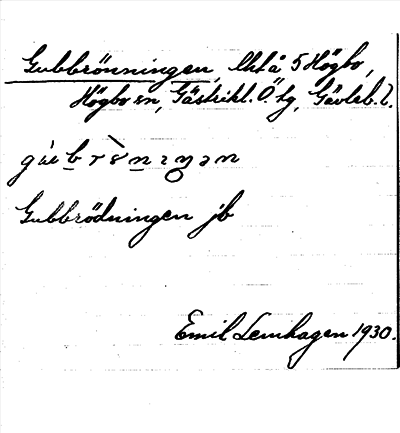 Gubbrönningen, Öktå 5 Högbo,
Högbo sn, Gästrikl. Ö tg, Gävleb. l.
Gubbrödningen jb
Emil Lemhagen 1930.